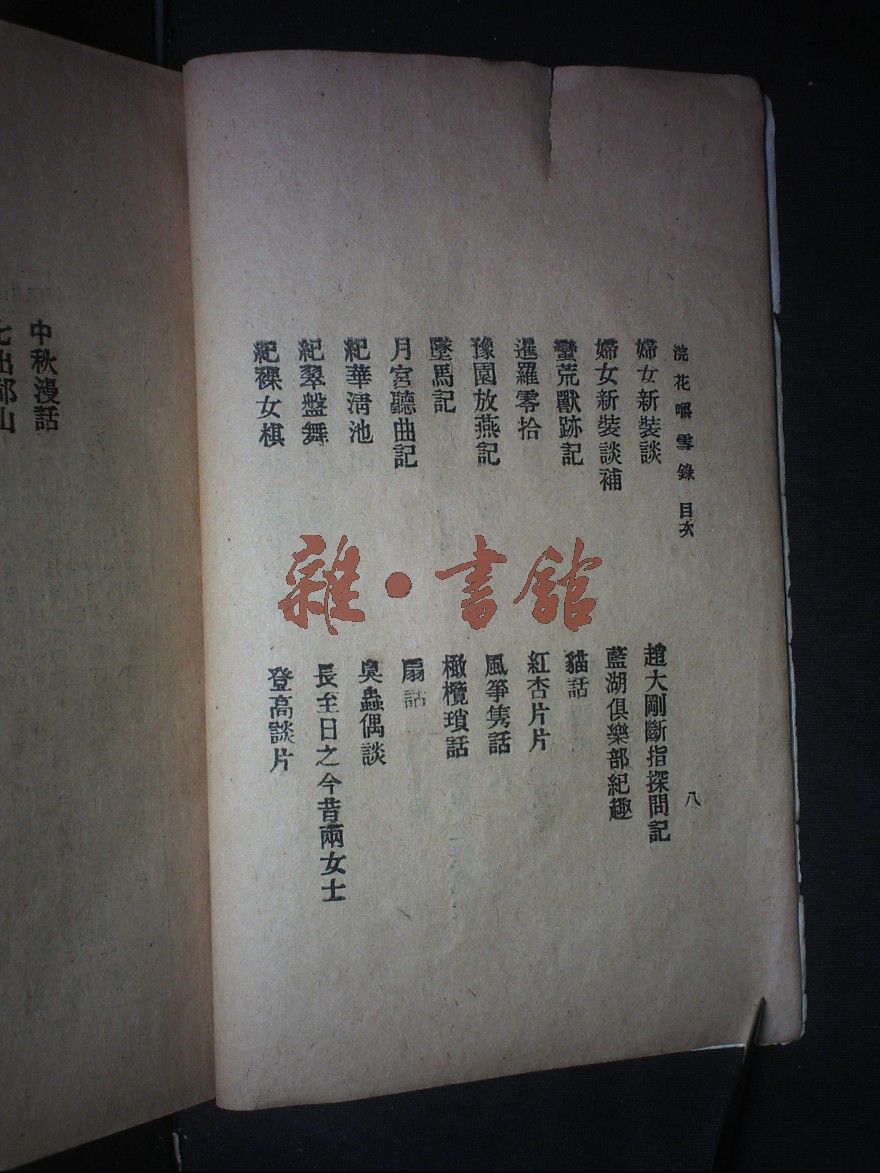 浣花嚼雪錄 目次
八
婦女新裝談
婦女新裝談補
蠻荒獸跡記
暹羅零拾
豫園放燕記
墜馬記
月宮聽曲記
紀華淸池
紀翠盤舞
紀裸女棋
趙大剛斷指探問記
藍湖俱樂部紀趣
貓話
紅杏片片
風箏雋話
橄欖瑣話
扇話
臭蟲偶談
長至日之今昔兩女士
登高談片
中秋漫話
雜·書館